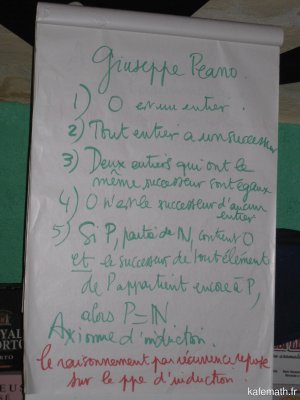 Giuseppe Peano.
1) 0 est un entier.
2) Tout entier a un successeur
3) Deux entiers qui ont le
même successeur sont égaux
4) 0 n'est le successeur d'aucun
entier
5) Si P, partie de ℕ, contient 0
et le successeur de tout élément
de P appartient encore à P,
alors P = ℕ
Axiome d'induction.
le raisonnement par récurrence repose
sur le ppe d'induction.
YAL
ORTO
PORTO
kafemath.fr